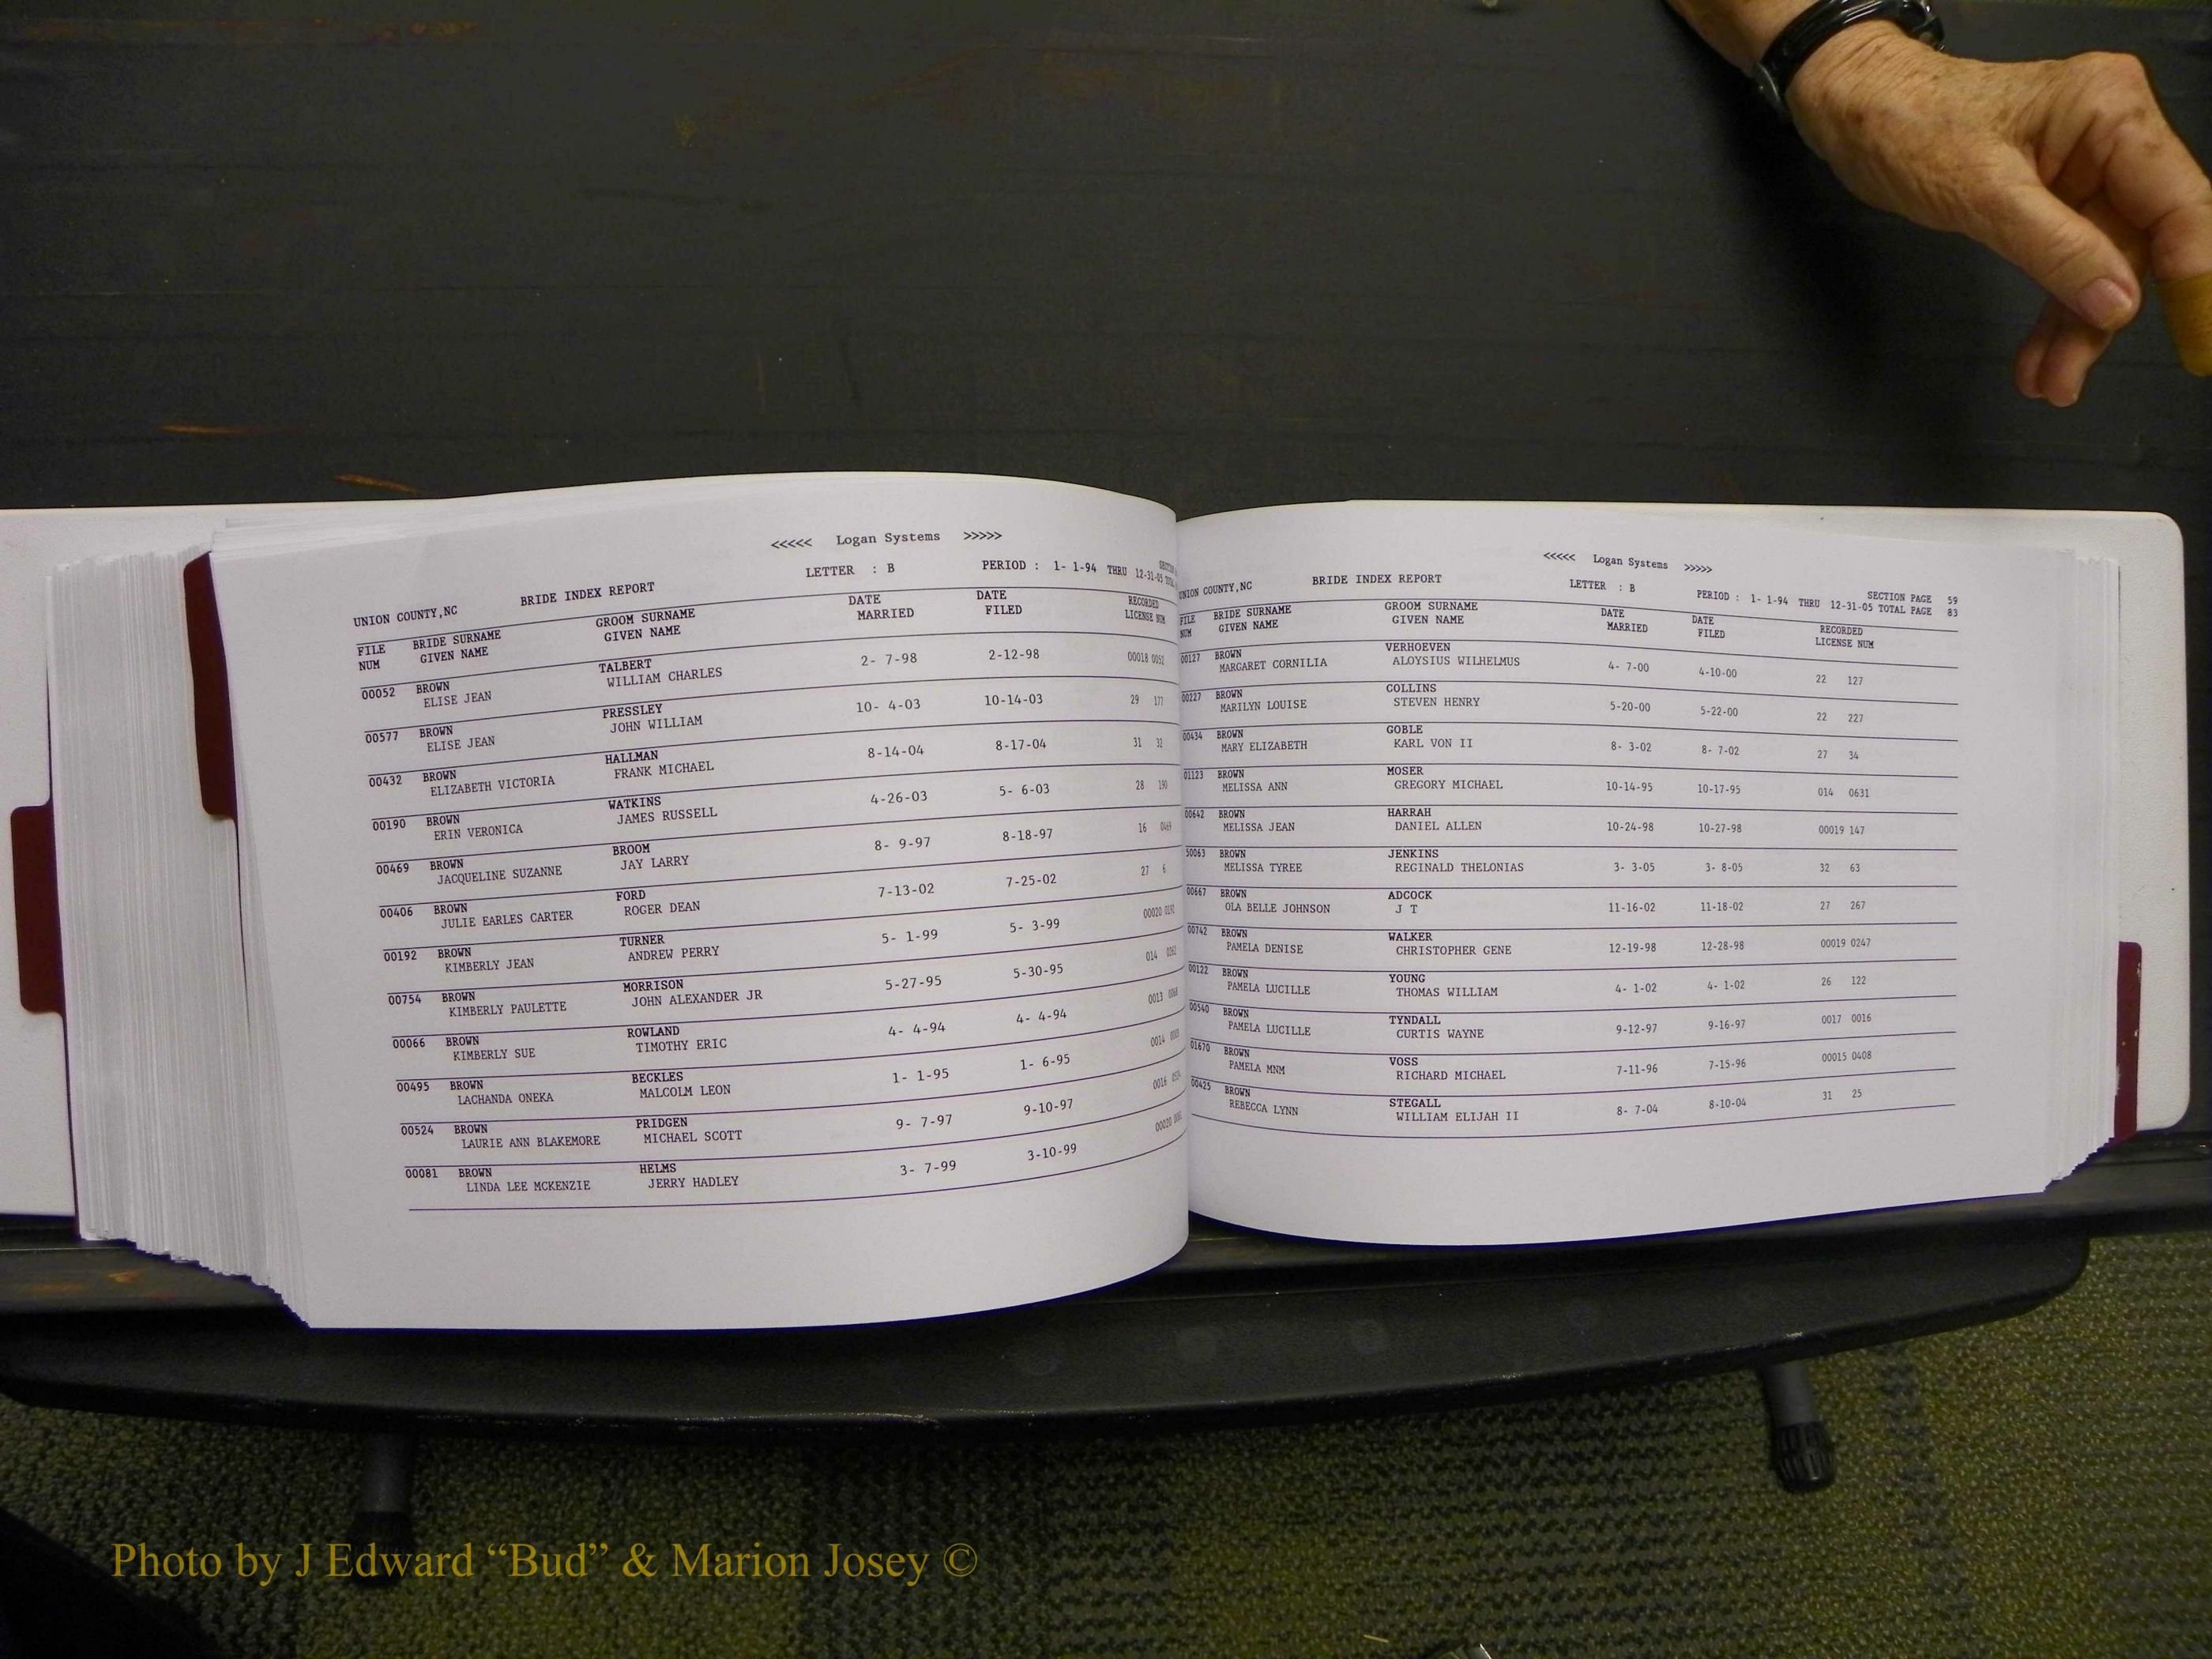 <<<<< Logan Systems >>>>>
UNION COUNTY,NC BRIDE INDEX REPORT LETTER : B PERIOD : 1- 1-94 THRU 12-31-05
FILE BRIDE SURNAME GROOM SURNAME DATE DATE RECORDED
NUM GIVEN NAME GIVEN NAME MARRIED FILED LICENSE NUM
00052 BROWN TALBERT 2- 7-98 2-12-98 00018 0052
ELISE JEAN WILLIAM CHARLES
00577 BROWN PRESSLEY 10- 4-03 10-14-03 29 177
ELISE JEAN JOHN WILLIAM
00432 BROWN HALLMAN 8-14-04 8-17-04 31 32
ELIZABETH VICTORIA FRANK MICHAEL
00190 BROWN WATKINS 4-26-03 5- 6-03 28 190
ERIN VERONICA JAMES RUSSELL
00469 BROWN BROOM 8- 9-97 8-18-97 16 0469
JACQUELINE SUZANNE JAY LARRY
00406 BROWN FORD 7-13-02 7-25-02 27 6
JULIE EARLES CARTER ROGER DEAN
00192 BROWN TURNER 5- 1-99 5- 3-99 00020 0192
KIMBERLY JEAN ANDREW PERRY
00754 BROWN MORRISON 5-27-95 5-30-95 014
KIMBERLY PAULETTE JOHN ALEXANDER JR
00066 BROWN ROWLAND 4- 4-94 4- 4-94 0013
KIMBERLY SUE TIMOTHY ERIC
00495 BROWN BECKLES 1- 1-95 1- 6-95 0014
LACHANDA ONEKA MALCOLM LEON
00524 BROWN PRIDGEN 9- 7-97 9-10-97 0016
LAURIE ANN BLAKEMORE MICHAEL SCOTT
00081 BROWN HELMS 3- 7-99 3-10-99 00020
LINDA LEE MCKENZIE JERRY HADLEY
<<<<< Logan Systems >>>>>
UNION COUNTY,NC BRIDE INDEX REPORT LETTER : B SECTION PAGE 59
PERIOD : 1- 1-94 THRU 12-31-05 TOTAL PAGE 83
FILE BRIDE SURNAME GROOM SURNAME DATE DATE RECORDED
NUM GIVEN NAME GIVEN NAME MARRIED FILED LICENSE NUM
00127 BROWN VERHOEVEN 4- 7-00 4-10-00 22 127
MARGARET CORNILIA ALOYSIUS WILHELMUS
00227 BROWN COLLINS 5-20-00 5-22-00 22 227
MARILYN LOUISE STEVEN HENRY
00434 BROWN GOBLE 8- 3-02 8- 7-02 27 34
MARY ELIZABETH KARL VON II
01123 BROWN MOSER 10-14-95 10-17-95 014 0631
MELISSA ANN GREGORY MICHAEL
00642 BROWN HARRAH 10-24-98 10-27-98 00019 147
MELISSA JEAN DANIEL ALLEN
50063 BROWN JENKINS 3- 3-05 3- 8-05 32 63
MELISSA TYREE REGINALD THELONIAS
00667 BROWN ADCOCK 11-16-02 11-18-02 27 267
OLA BELLE JOHNSON J T
00742 BROWN WALKER 12-19-98 12-28-98 00019 0247
PAMELA DENISE CHRISTOPHER GENE
00122 BROWN YOUNG 4- 1-02 4- 1-02 26 122
PAMELA LUCILLE THOMAS WILLIAM
00540 BROWN TYNDALL 9-12-97 9-16-97 0017 0016
PAMELA LUCILLE CURTIS WAYNE
01670 BROWN VOSS 7-11-96 7-15-96 00015 0408
PAMELA MNM RICHARD MICHAEL
00425 BROWN STEGALL 8- 7-04 8-10-04 31 25
REBECCA LYNN WILLIAM ELIJAH II
Photo by J Edward “Bud” & Marion Josey ©